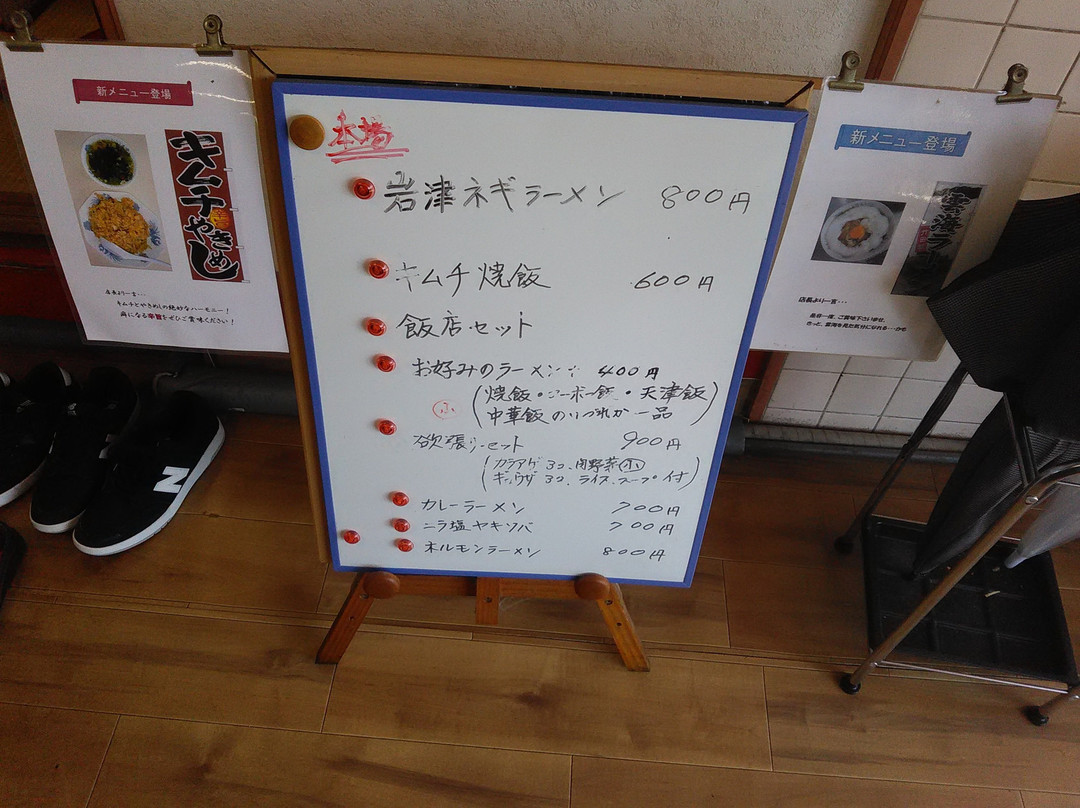 新メニュー登場
キムチやきめし
店長より一言・・・
キムチとやきめしの絶妙なハーモニー！
病になる辛旨をぜひご賞味ください！
本場
岩津ネギラーメン 800円
キムチ焼飯 600円
飯店セット
お好みのラーメン 400円
(焼飯・ 天津飯
小
中華飯のいづれか一品)
欲張りセット 900円
(カラアゲ3コ、肉野菜小
ギョウザ3コ、ライス、スープ付)
カレーラーメン 700円
ニラ塩ヤキソバ 700円
ホルモンラーメン 800円
新メニュー登場
雲海ラー
店長より一言・・・
是非一度、ご賞味下さいませ。
きっと、雲海を見た気分になれる・・・かも
N